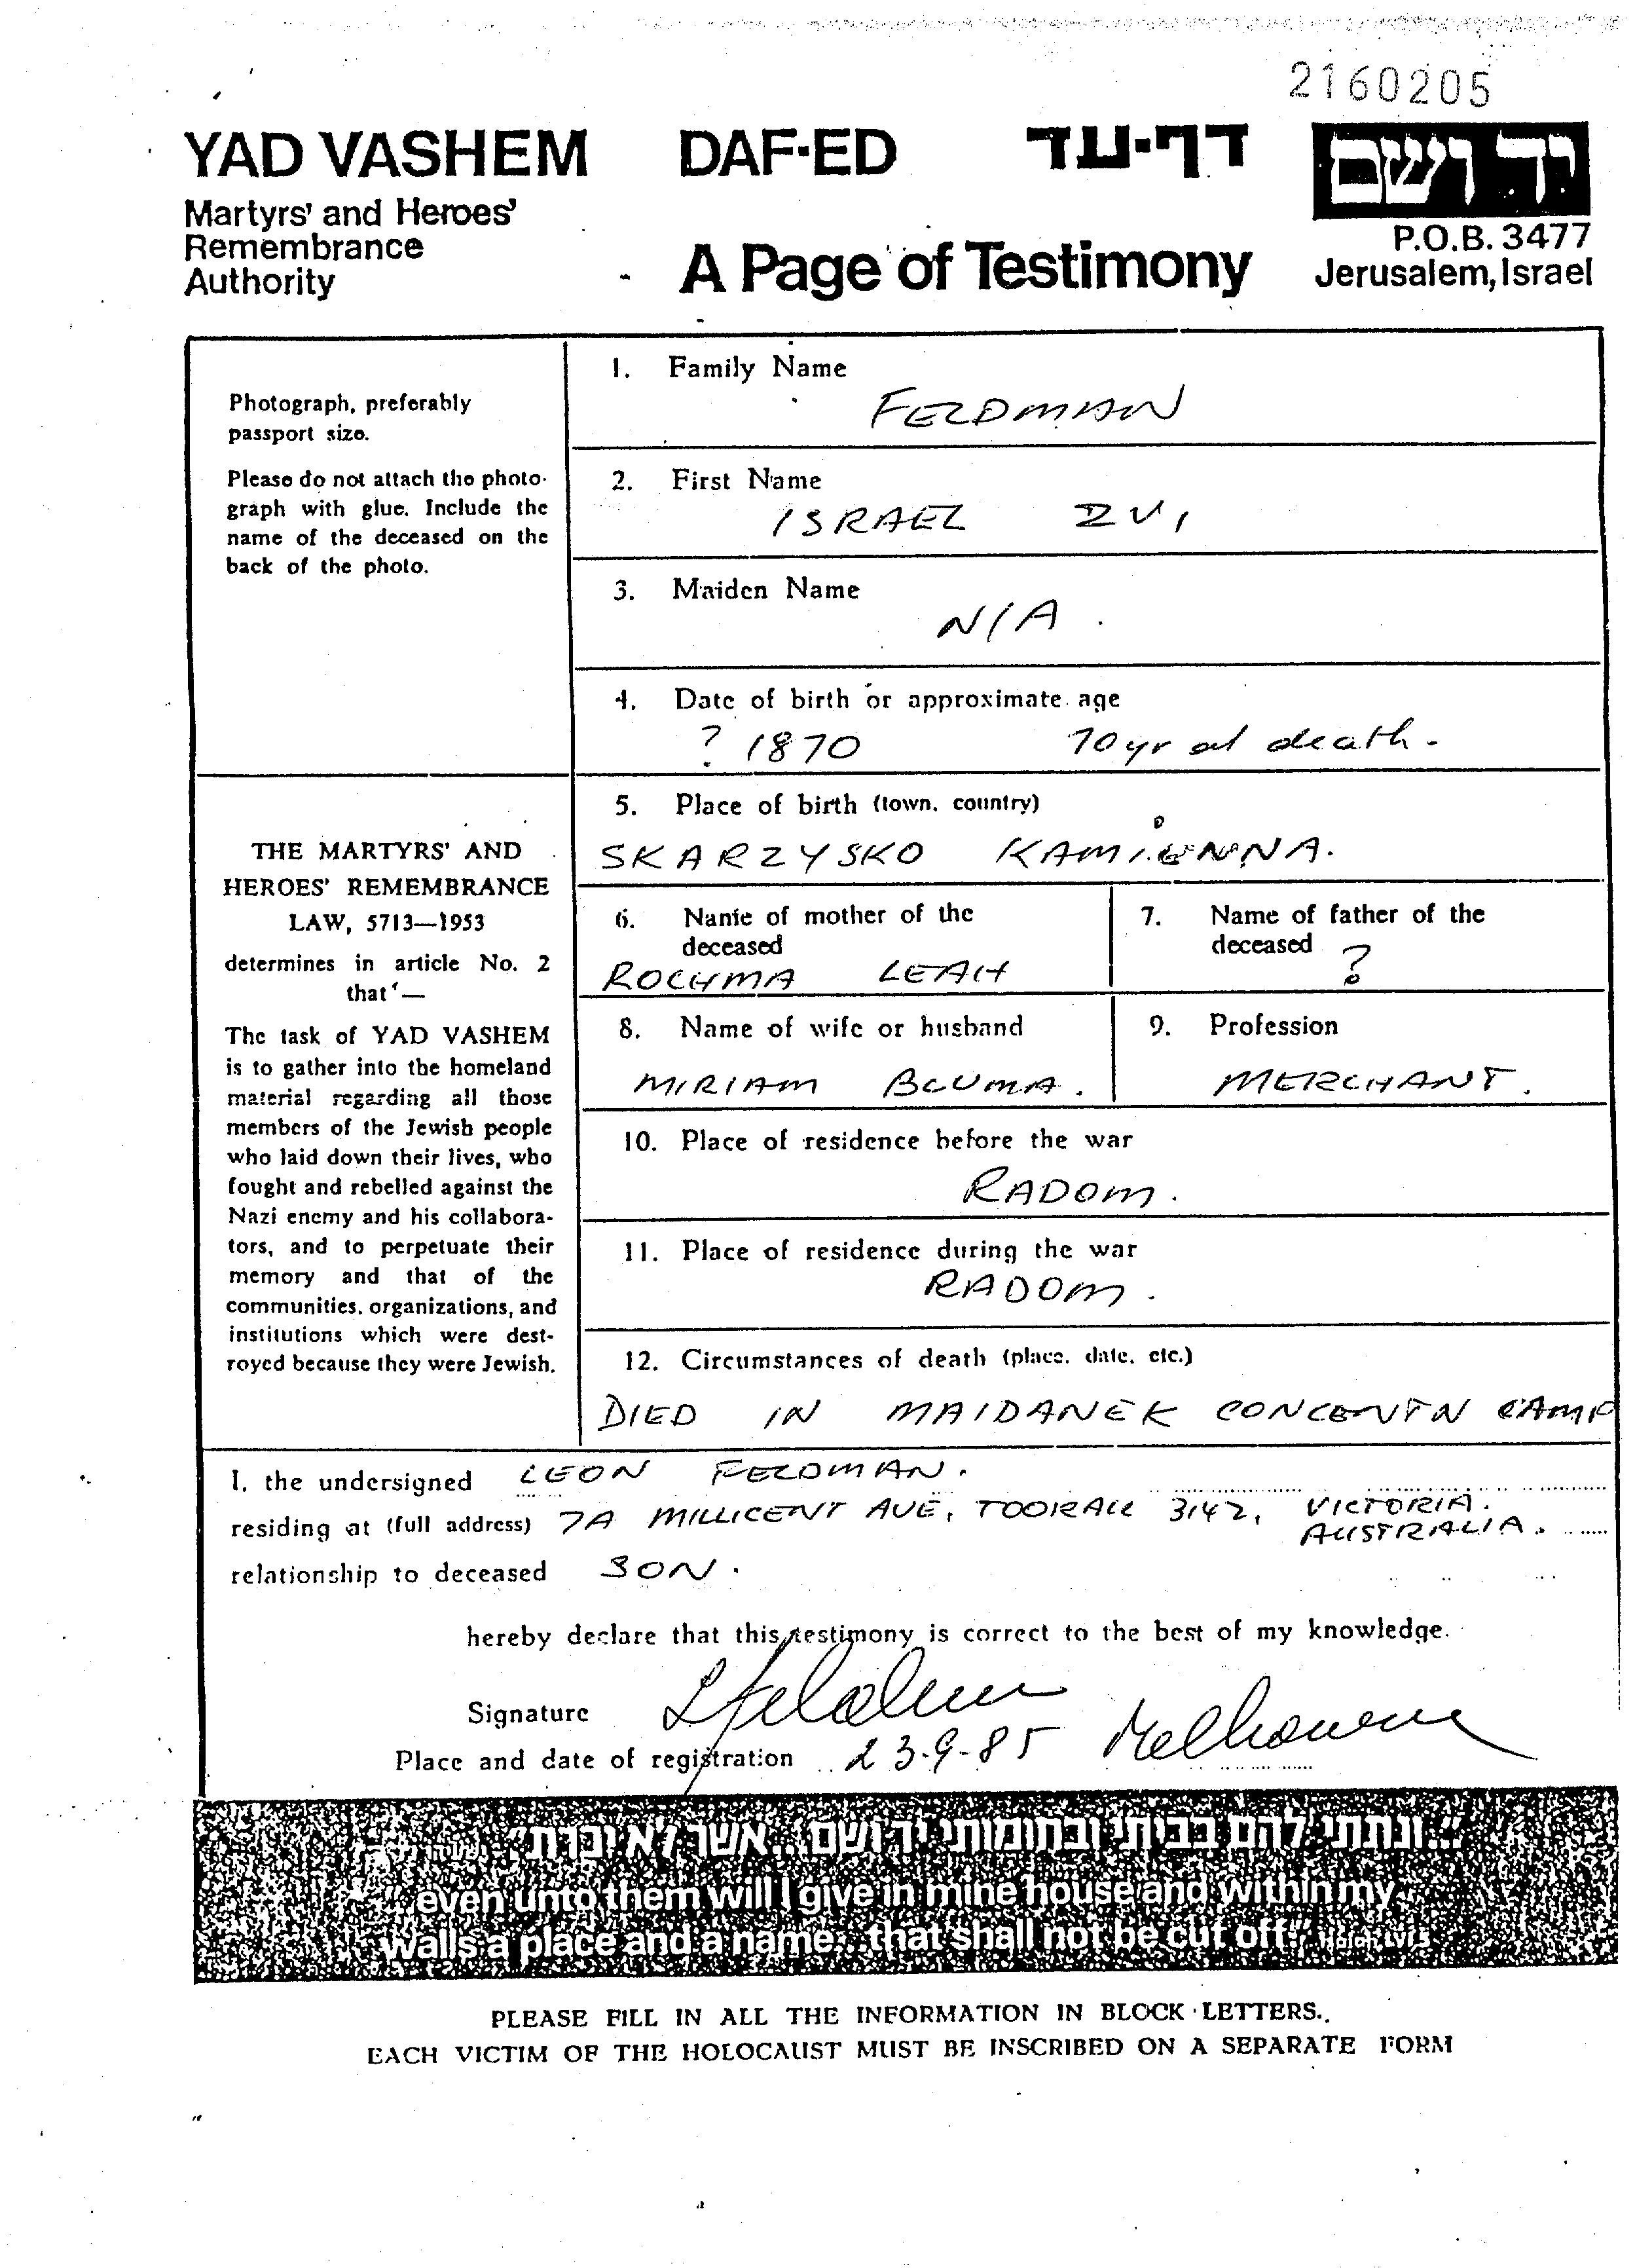 2160205
YAD VASHEM DAF-ED דף-עד יד ושם
Martyrs' and Heroes'
Remembrance
Authority
A Page of Testimony
P.O.B. 3477
Jerusalem, Israel
Photograph, preferably
passport size.
Please do not attach the photo-
graph with glue. Include the
name of the deceased on the
back of the photo.
THE MARTYRS' AND
HEROES' REMEMBRANCE
LAW, 5713—1953
determines in article No. 2
that —
The task of YAD VASHEM
is to gather into the homeland
material regarding all those
members of the Jewish people
who laid down their lives, who
fought and rebelled against the
Nazi enemy and his collabora-
tors, and to perpetuate their
memory and that of the
communities, organizations, and
institutions which were dest-
royed because they were Jewish.
1. Family Name
FELDMAN
2. First Name
ISRAEL ZVI
3. Maiden Name
N/A.
4. Date of birth or approximate age
? 1870 70 yr at death.
5. Place of birth (town, country)
SKARZYSKO KAMIENNA.
6. Name of mother of the
deceased
ROCHMA LEAH
7. Name of father of the
deceased ?
8. Name of wife or husband
MIRIAM BLUMA.
9. Profession
MERCHANT.
10. Place of residence before the war
RADOM.
11. Place of residence during the war
RADOM.
12. Circumstances of death (place, date, etc.)
DIED IN MAIDANEK CONCENTN CAMP
I, the undersigned LEON FELDMAN.
residing at (full address) 7A MILLICENT AVE, TOORAK 3142, VICTORIA.
AUSTRALIA.
relationship to deceased SON.
hereby declare that this testimony is correct to the best of my knowledge.
Signature LFeldman
Place and date of registration 23-9-85 Melbourne
"ונתתי להם בביתי ובחומותי יד ושם... אשר לא יכרת"
"even unto them will I give in mine house and within my
walls a place and a name... that shall not be cut off."
PLEASE FILL IN ALL THE INFORMATION IN BLOCK LETTERS.
EACH VICTIM OF THE HOLOCAUST MUST BE INSCRIBED ON A SEPARATE FORM